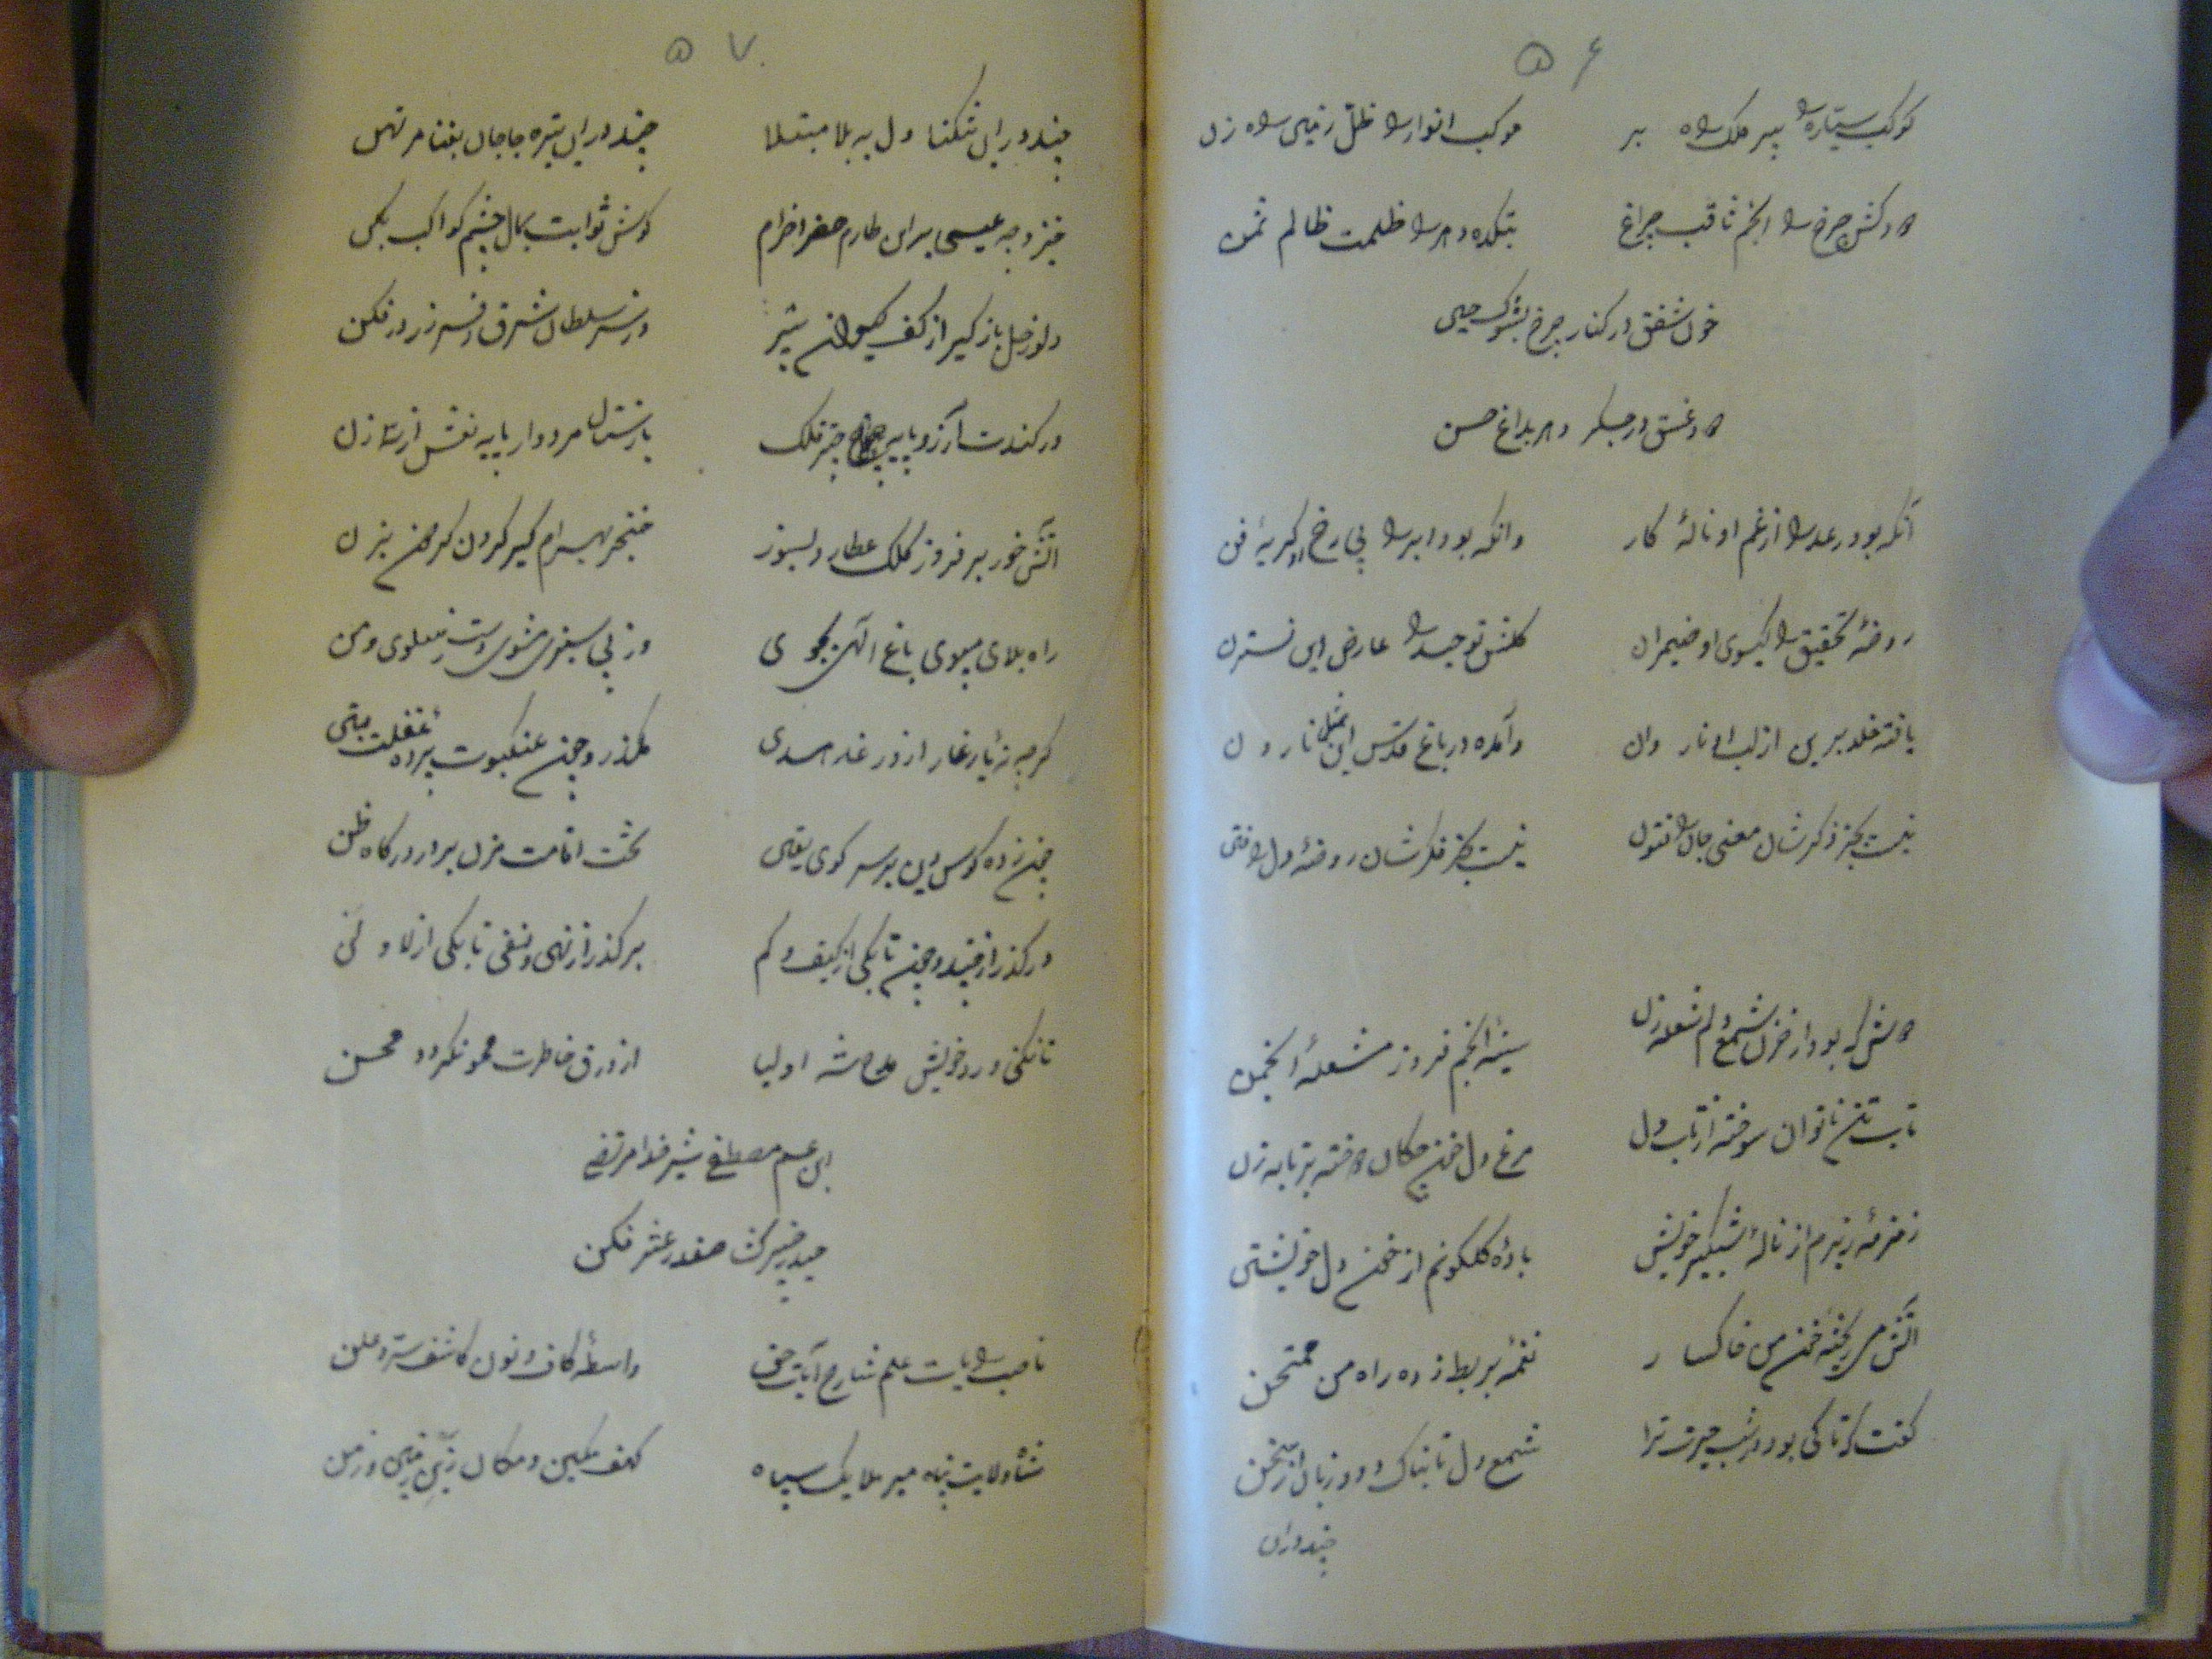 ۵۶
کوکب سیاره را پیر فلک راه بر موکب انوار را ظل زمین راه زن
گلشن چرخ را انجم ثاقب چراغ بتکده دهر را ظلمت ظالم شمن
خون شفق در کنار چرخ بشوک حسین
داغش در جگر دهر بداغ حسن
آنکه بود رعد را از غم او ناله کار وانکه بود ابر را بی رخ او گریه فن
روضه تحقیق را گیسوی او ضیمران گلشن توحید را عارض این نسترن
یافته خلد برین از لب او ناردان وآمده در باغ قدس این بمثل نارون
نیست بجز ذکرشان معنی جان را فتون نیست بجز فکرشان روضه دل را فتن
دوش که بود از حزن شمع دلم شعله زن سینه انجم فروز مشعله انجمن
تاب تن ناتوان سوخته از تاب دل مرغ دل خون چکان دوخته بر بابزن
زمزمه زیرم از ناله شبگیر خویش باده گلگونم از خون دل خویشتن
آتش می ریخته خون من خاکسار نغمه بربط زده راه من ممتحن
گفت که تا کی بود در شب حیرت ترا شمع دل تابناک دود زبان از سخن
چند درین
۵۷
چند درین تنگنا دل به بلا مبتلا چند درین تیره جا جان بعنا مرتهن
خیز و چو عیسی برین طارم خضرا خرام گوش ثوابت بمال چشم کواکب بکن
دلو زحل باز گیر از کف کیوان پیر وز سر سلطان شرق افسر زر در فکن
ور کندت آرزو پایه چتر فلک باز ستان مردوار پایه نعش از سه زن
آتش خور برفروز کلک عطارد بسوز خنجر بهرام گیر گردن گردون بزن
راه بلای مپوی باغ الهی بجوی وز پی سلوی مشوی دست ز سلوی و من
گر چه نه یار غار از در غار اندر آی مگذر و چون عنکبوت پرده غفلت متن
چون زده کوس دین بر سر کوی یقین تخت اقامت مزن بر در درگاه ظن
در گذر از چند و چون تا بکی از کیف و کم بر گذر از نهی و نفی تا بکی از لا و لن
تا نکنی ورد خویش مدح شه اولیا از ورق خاطرت محو نگردد محن
ابن عم مصطفی شیر خدا مرتضی
حیدر خیبر گشا صفدر عنتر فکن
ناصب رایات علم شارح آیات حق واسطه کاف و نون کاشف سر و علن
شاه ولایت پناه میر ملایک سپاه کهف مکین و مکان زین زمین و زمن